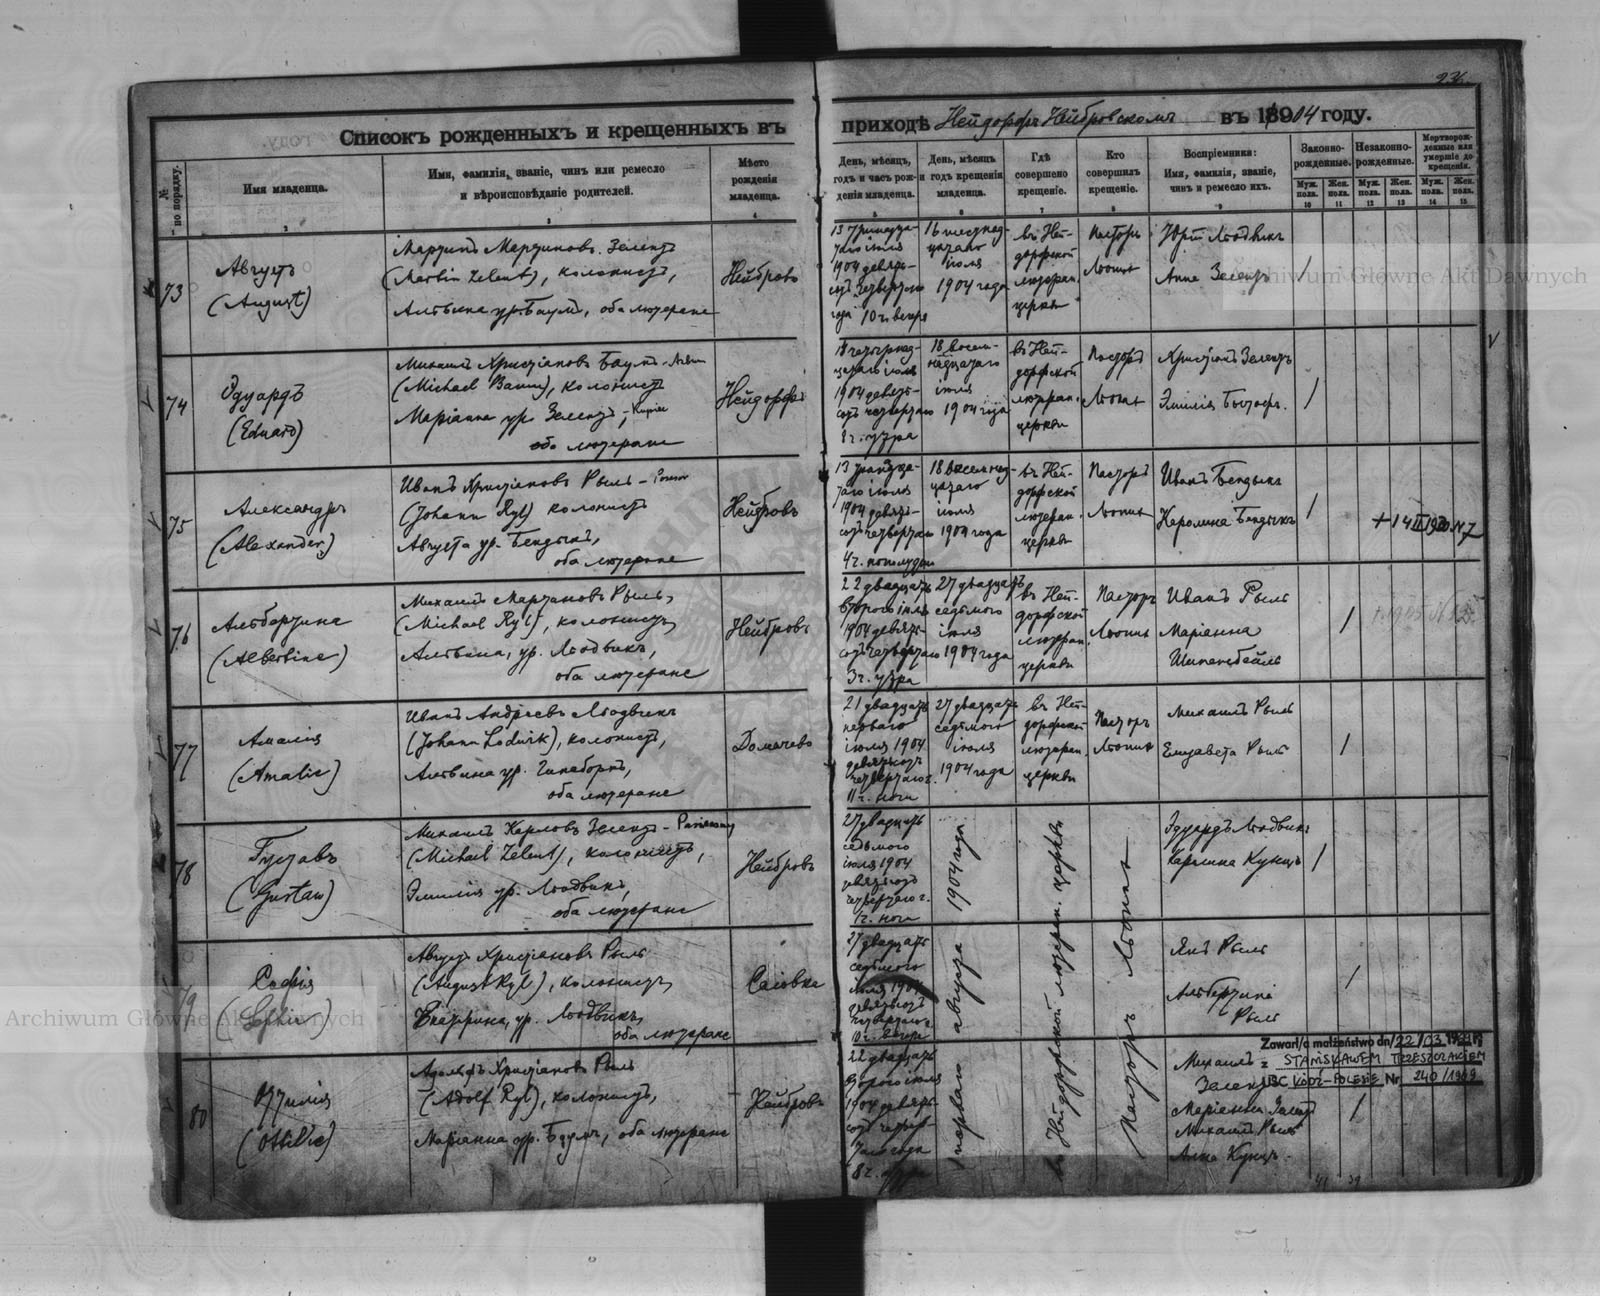 236.
Списокъ рожденныхъ и крещенныхъ въ
приходѣ Нейдорфъ Нейбровскомъ въ 1904 году.
№ по порядку.
Имя младенца.
Имя, фамилія, званіе, чинъ или ремесло
и вѣроисповѣданіе родителей.
Мѣсто
рожденія
младенца.
День, мѣсяцъ,
годъ и часъ рож-
денія младенца.
День, мѣсяцъ
и годъ крещенія
младенца.
Гдѣ
совершено
крещеніе.
Кто
совершилъ
крещеніе.
Воспріемники:
Имя, фамилія, званіе,
чинъ и ремесло ихъ.
Законно-
рожденные.
Незаконно-
рожденные.
Мертворож-
денные или
умершіе до
крещенія.
Муж. пола.
Жен. пола.
Муж. пола.
Жен. пола.
Муж. пола.
Жен. пола.
1 2 3 4 5 6 7 8 9 10 11 12 13 14 15
73
Августъ
(August)
Мартинъ Мартиновъ Зелентъ
(Martin Zelent), колонистъ,
Альвина ур. Баумъ, оба лютеране
Нейбровъ
13 тринадца-
таго іюля
1904 девять-
сотъ четвертаго
года 10 ч. вечера
16 шестнад-
цатаго
іюля
1904 года
въ Ней-
дорфской
лютеран.
церкви
Пасторъ
Юрій Людвикъ
Анна Зелентъ
/
74
Эдуардъ
(Eduard)
Михаилъ Христіановъ Баумъ
(Michael Baum), колонистъ
Маріанна ур. Зелентъ,
оба лютеране
Нейдорфъ
1904 девять-
сотъ четвертаго
8 ч. утра
18 восем-
надцатаго
іюля
1904 года
въ Ней-
дорфской
лютеран.
церкви
Пасторъ
Христіанъ Зелентъ
Эмилія
/
75
Александръ
(Alexander)
Иванъ Христіановъ Рыль
(Johann Ryl) колонистъ
Августа ур. Бендыкъ,
оба лютеране
Нейбровъ
13 тринадца-
таго іюля
1904 девять-
сотъ четвертаго
4 ч. пополудни
18 восемнад-
цатаго
іюля
1904 года
въ Ней-
дорфской
лютеран.
церкви
Пасторъ
Иванъ Бендыкъ
Каролина Бендыкъ
/
76
Альбертина
(Albertine)
Михаилъ Мартиновъ Рыль,
(Michael Ryl), колонистъ,
Альвина, ур. Людвикъ,
оба лютеране
Нейбровъ
22 двадцать
второго іюля
1904 девять-
сотъ четвертаго
3 ч. утра
27 двадцать
седьмого
іюля
1904 года
въ Ней-
дорфской
лютеран.
церкви
Пасторъ
Иванъ Рыль
Маріанна
/
77
Амалія
(Amalie)
Иванъ Андреевъ Людвикъ
(Johann Ludwik), колонистъ,
Альвина ур.
оба лютеране
Домачево
21 двадцать
перваго
іюля 1904
девятьсотъ
четвертаго г.
11 ч. ночи
27 двадцать
седьмого
іюля
1904 года
въ Ней-
дорфской
лютеран.
церкви
Пасторъ
Михаилъ Рыль
Елизавета Рыль
/
78
Густавъ
(Gustav)
Михаилъ Карловъ Зелентъ
(Michael Zelent), колонистъ,
Эмилія ур. Людвикъ,
оба лютеране
Нейбровъ
27 двадцать
седьмого
іюля 1904
девятьсотъ
четвертаго г.
1 ч. ночи
Эдуардъ Людвикъ
Каролина Кунцъ
/
79
Софія
(Sophie)
Августъ Христіановъ Рыль
(August Ryl), колонистъ,
ур. Людвикъ,
оба лютеране
27 двадцать
седьмого
іюля 1904
девятьсотъ
четвертаго г.
10 ч. вечера
Янъ Рыль
Альбертина
Рыль
/
80
Оттилія
(Ottilie)
Адольфъ Христіановъ Рыль
(Adolf Ryl), колонистъ,
Маріанна ур. Баумъ, оба лютеране
Нейбровъ
22 двадцать
второго іюля
1904 девять-
сотъ четвер-
таго года
8 ч. утра
1 перваго августа 1904 года
въ Нейдорфской лютеран. церкви
Пасторъ
Михаилъ
Зелентъ
Маріанна
Михаилъ Рыль
Анна Кунцъ
/
Zawarł/a małżeństwo dn/22/03
z STANISŁAWEM TRZESZCZAKIEM
USC ŁÓDŹ-POLESIE Nr 240/1969
Archiwum Główne Akt Dawnych
Archiwum Główne Akt Dawnych